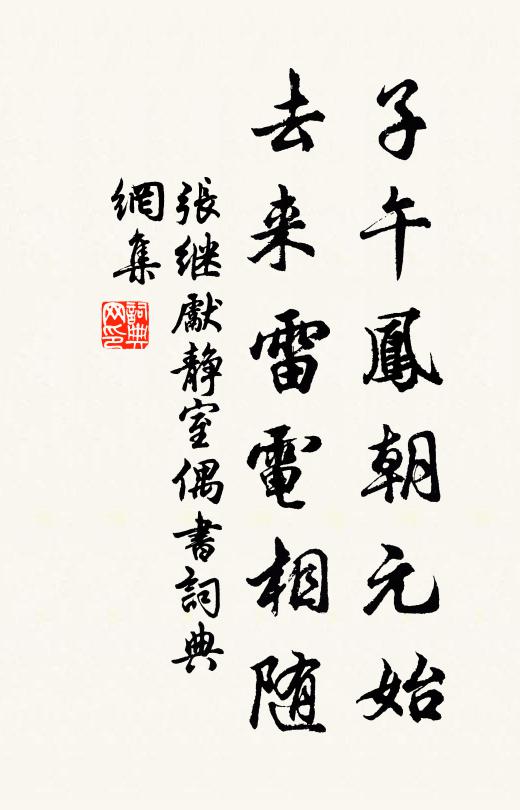 子午鳳朝元始
去来雷電相随
張继獻靜室偶書詞典
網集
詞典
网印